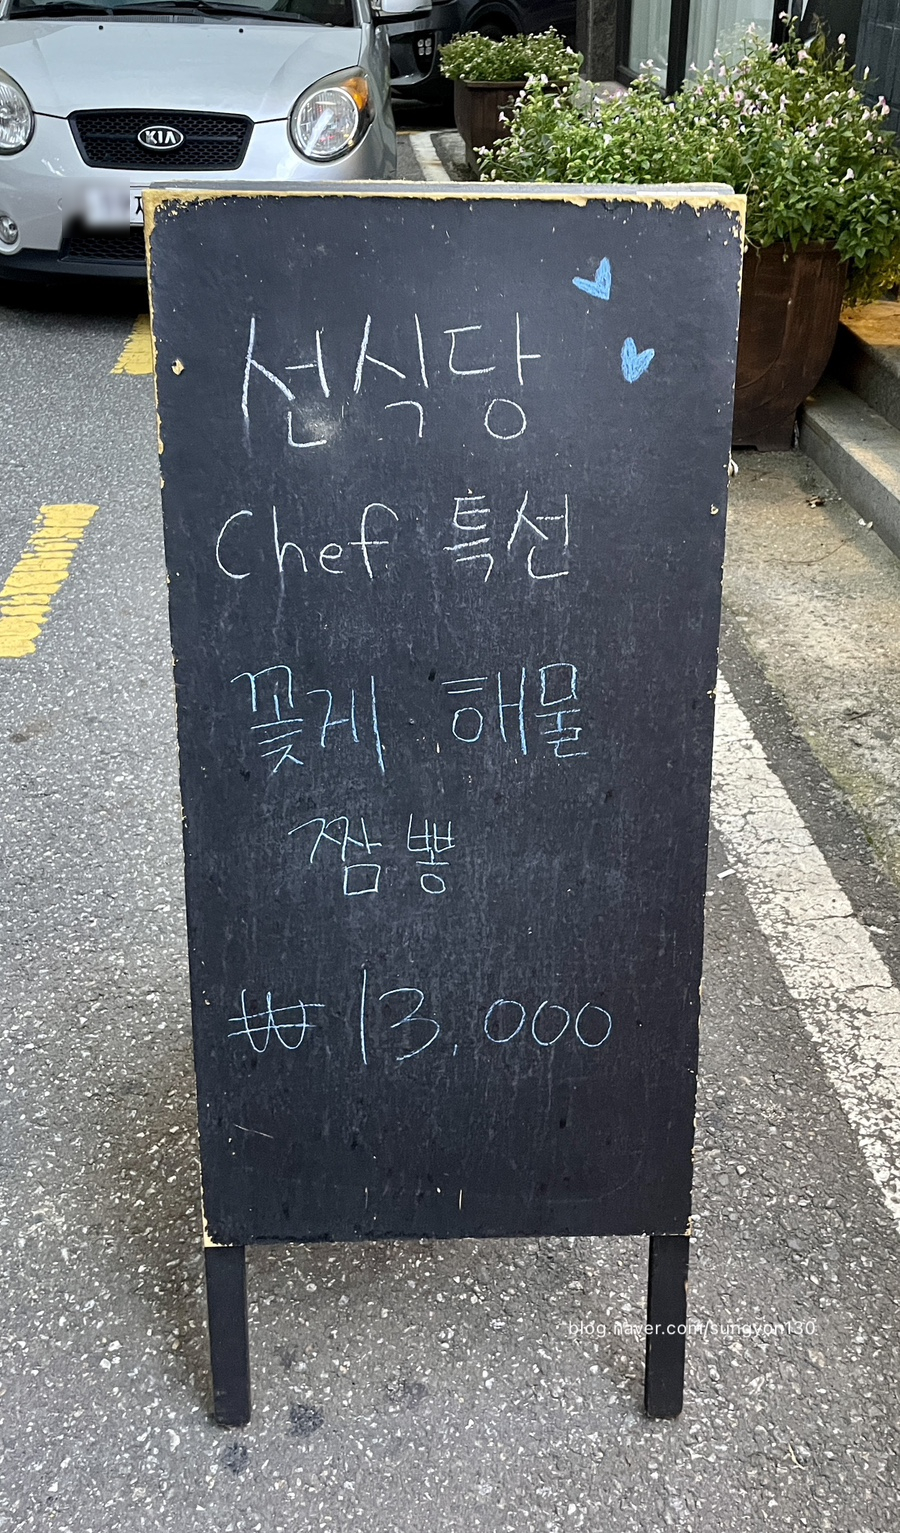 KIA
선식당
Chef 특선
꽃게 해물
짬뽕
₩ 13,000
blog.naver.com/sungyon130